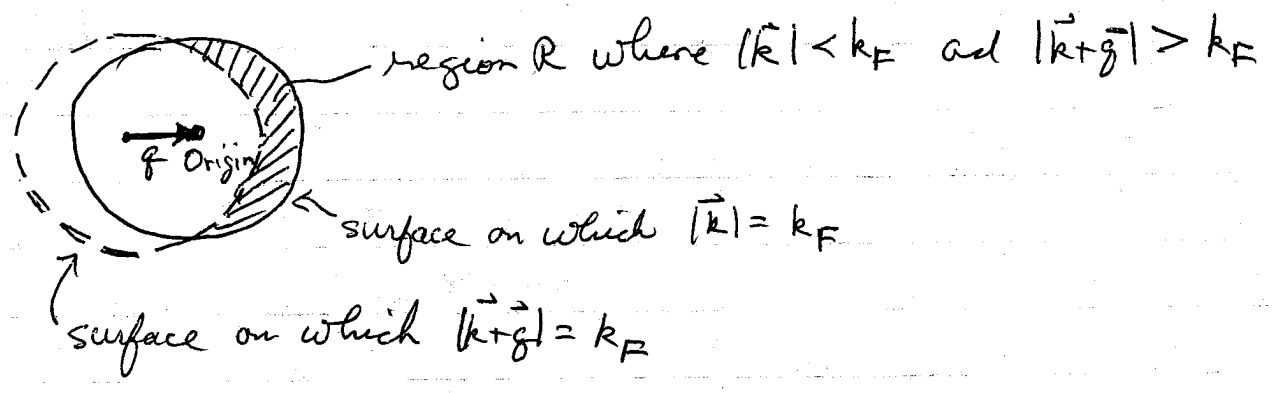 region R where |k⃗| < k_F ad |k⃗+q⃗| > k_F
q Origin
surface on which |k⃗| = k_F
surface on which |k⃗+q⃗| = k_F